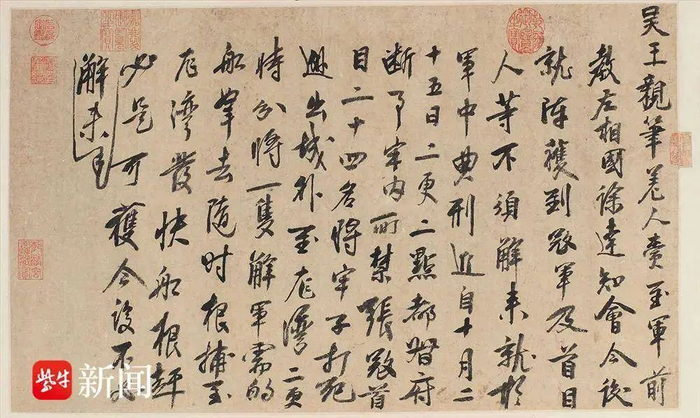 吴王親筆差人賫至軍前
教左相國徐達知會今後
就陣獲到寇軍及首目
人等不須解来就於
軍中典刑近自十月二
十五日二更二點都督府
断了牢内所禁張寇首
目二十四名將牢子打死
越出城外至龍灣二更
時分將一隻解軍需的
船拿去隨时根捕至
龍灣發快船根趕
必是可獲今後不必
解来
紫牛新闻